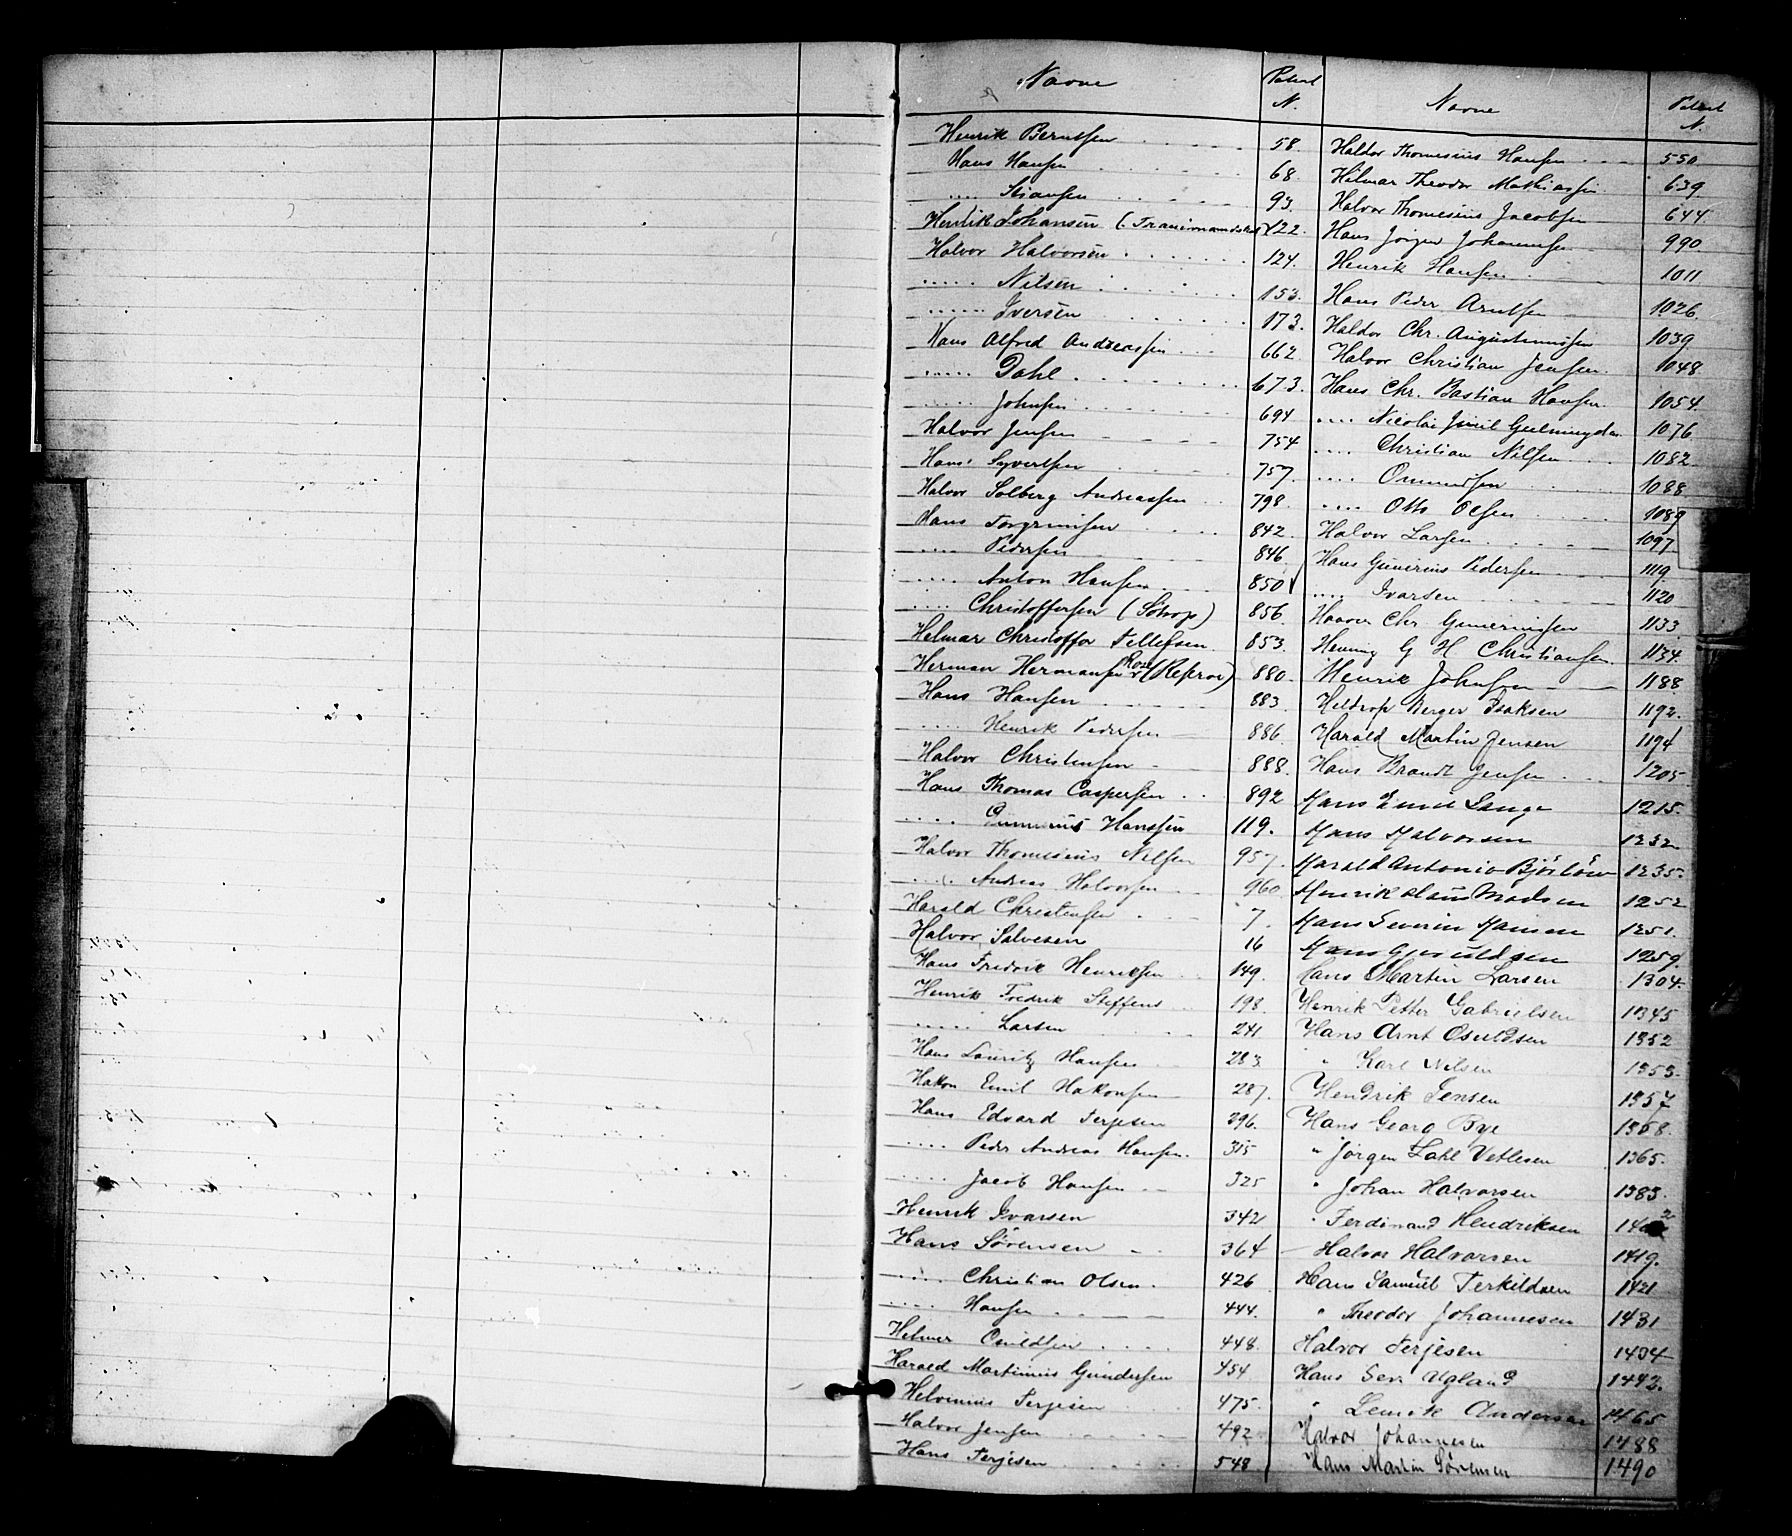 Navne Patent N.
Henrik Berntsen 58.
Hans Hansen 68.
..... Stiansen 93.
Hendrik Johansen 122.
Halvor Halvorsen 124.
..... Nilsen 153.
..... Iversen 173.
Hans Alfred Andreassen 662
..... Dahl 673.
..... Johnsen 694
Halvor Jensen 754
Hans Syvertsen 757.
Halvor Solberg Andreassen 798
Hans Torgrimsen 842.
..... Pedersen 846
..... Anton Hansen 850
..... Christoffersen 856
Helmar Christoffer Tellefsen 853.
Herman Hermansen 880
Hans Hansen 883
..... Henrik Pedersen 886
Halvor Christensen 888.
Hans Thomas Caspersen 892
..... Hanssen 119.
Halvor Thomesius Nilsen 957.
..... Andreas Halvorsen 960
Harald Christensen 7.
Halvor Salvesen 16
Hans Fredrik Henriksen 149.
Henrik Fredrik Steffens 198
..... Larsen 241
Hans Lauritz Hansen 283
Hakon Emil Hakonsen 287.
Hans Edvard Terjesen 296.
..... Peder Andreas Hansen 315
..... Jacob Hansen 325
Henrik Ivarsen 342
Hans Sørensen 364
..... Christian Olsen 426
..... Hansen 444.
Helmer Osuldsen 448
Harald Martinius Gundersen 454
Terjesen 475
Halvor Jensen 492
Hans Terjesen 548
Navne Patent N.
Haldor Thomesius Hansen 550
Hilmar Theodor Mathiassen 639
Halvor Thomesius Jacobsen 644
Hans Jörgen Johannesen 990
Henrik Hansen 1011
Hans Peder Arntsen 1026
Haldor Chr. Augustinussen 1039
Halvor Christian Jensen 1048
Hans Chr. Bastian Hansen 1054.
..... Nicolai 1076
..... Christian Nilsen 1082
..... Omundsen 1088
..... Otto Olsen 1089
Halvor Larsen 1097
Hans Gunerius Pedersen 1119
..... Ivarsen 1120
Haaver Chr. 1133
Hening G H Christiansen 1134.
Henrik Johnsen 1188
Berger Isaksen 1192.
Harald Martin Jensen 1194
Hans Brandt Jensen 1205
Hans Emil Lange 1215.
Hans Halvorsen 1232
Harald Antonio 1235.
Henrik Claus Madsen 1252
Hans Severin Hansen 1251.
Hans 1259.
Hans Martin Larsen 1304.
Henrik Petter Gabrielsen 1345
Hans Arnt Osuldsen 1352
" Karl Nilsen 1353.
Hendrik Jensen 1357
Hans Georg Bye 1358.
" Jørgen Dahl Vetlesen 1365.
" Johan Halvorsen 1383.
" Ferdinand Hendriksen
Halvor Halvorsen 1419.
Hans Samuel Terkildsen 1421
" Theodor Johannesen 1431
Halvor Terjesen 1434
Hans Sev. Ugland 1443.
" Andersen 1465
Halvor Johannesen 1488
Hans Martin Sørensen 1490